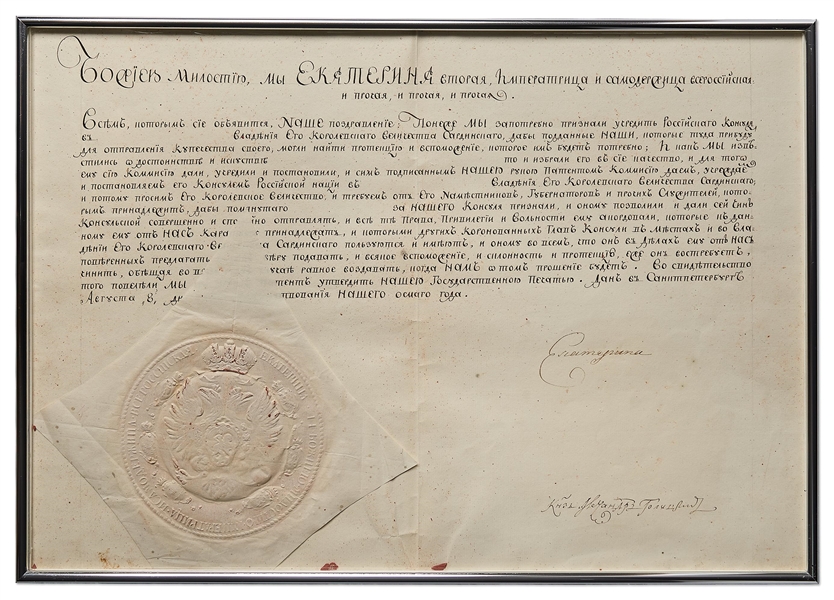 Божіею Милостію, мы ЕКАТЕРИНА вторая, Імператрица и самодержица всероссійская
и прочая, и прочая, и прочая.
Всѣмъ, которымъ сіе объявится, НАШЕ поздравленіе. Понеже МЫ запотребно признали учредить Россійскаго Консула
въ Владѣнія Его Королевскаго величества Сардинскаго, дабы подданные НАШИ, которые туда прибудутъ
для отправленія купечества своего, могли найти протекцію и вспоможеніе, которое имъ будетъ потребно; И какъ МЫ извѣ-
стились о достоинствѣ и искуствѣ то и избрали его въ сіе качество, и для того
ему сію Коммисію дали, учредили и постановили, и симъ подписаннымъ НАШЕЮ рукою Патентомъ Коммисію даемъ, учреждаемъ
и постановляемъ его Консуломъ Россійской націи въ Владѣнія Его Королевскаго Величества Сардинскаго;
и потому просимъ Его Королевское величество, и требуемъ отъ Его Намѣстниковъ, Губернаторовъ и прочихъ Служителей, кото-
рымъ принадлежитъ, дабы помянутаго за НАШЕГО Консула признали, и оному позволили и дали сей Чинъ
Консульской совершенно и отправлять, и всѣ тѣ Права, Привилегіи и Вольности ему
ному ему отъ НАСЪ принадлежатъ, и которыми другихъ Коронованныхъ Главъ Консули въ Мѣстахъ и во Вла-
дѣніи Его Королевскаго Сардинскаго пользуются и имѣютъ, и оному во всемъ, что онъ въ Дѣлахъ ему отъ НАСЪ
повѣренныхъ предлагать вѣру подавать, и всякое вспоможеніе, и склонность и протекцію, гдѣ онъ востребуетъ,
чинить, обѣщая равное воздавать, когда НАМЪ о томъ прошеніе будетъ. Во свидѣтельство
того повелѣли МЫ утвердить НАШЕЮ Государственною Печатью. Данъ въ Санктпетербургѣ
Августа, 8, НАШЕГО осмаго года.
Екатерина
Князь Александръ Голицынъ